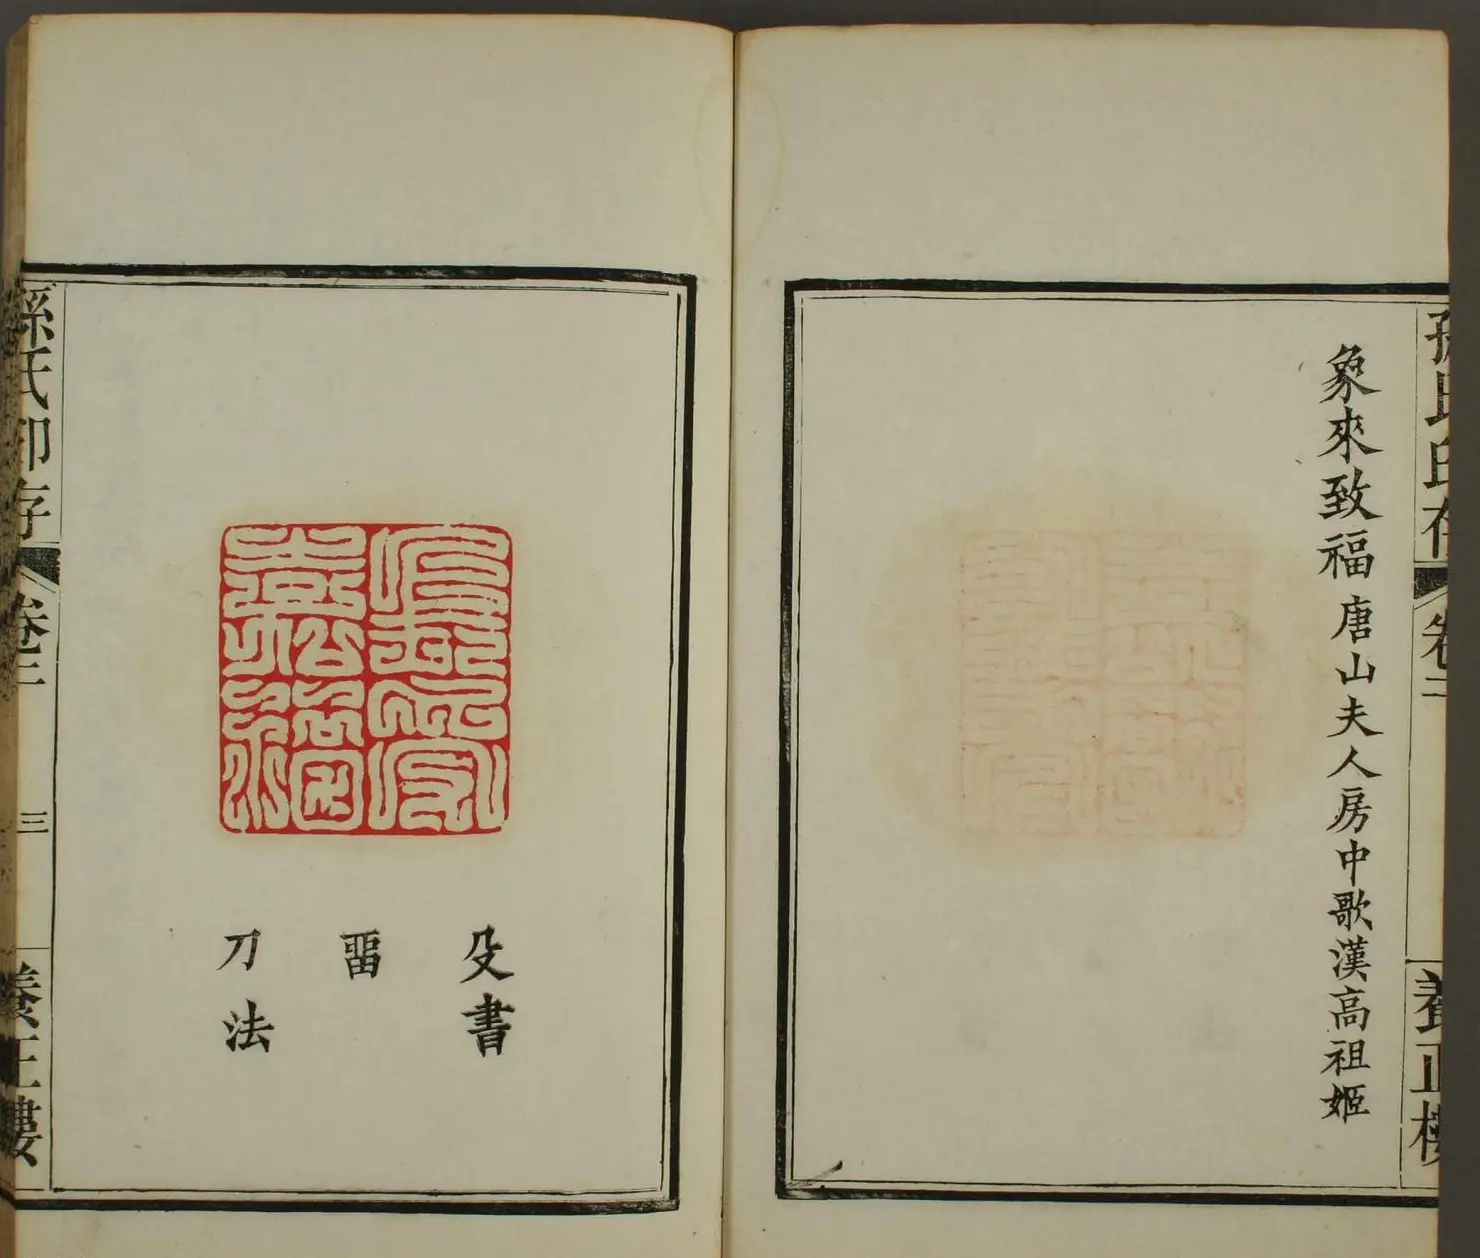 孫氏印存
卷二
養正樓
象來致福 唐山夫人房中歌漢高祖姬
殳書
畱
刀法
孫氏印存
卷二
三
養正樓